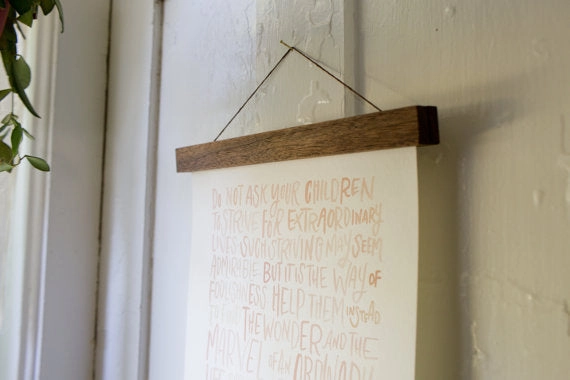 DO NOT ASK YOUR CHILDREN
TO STRIVE FOR EXTRAORDINARY
LIVES SUCH STRIVING MAY SEEM
ADMIRABLE BUT IT IS THE WAY OF
FOOLISHNESS HELP THEM INSTEAD
TO FIND THE WONDER AND THE
MARVEL OF AN ORDINARY